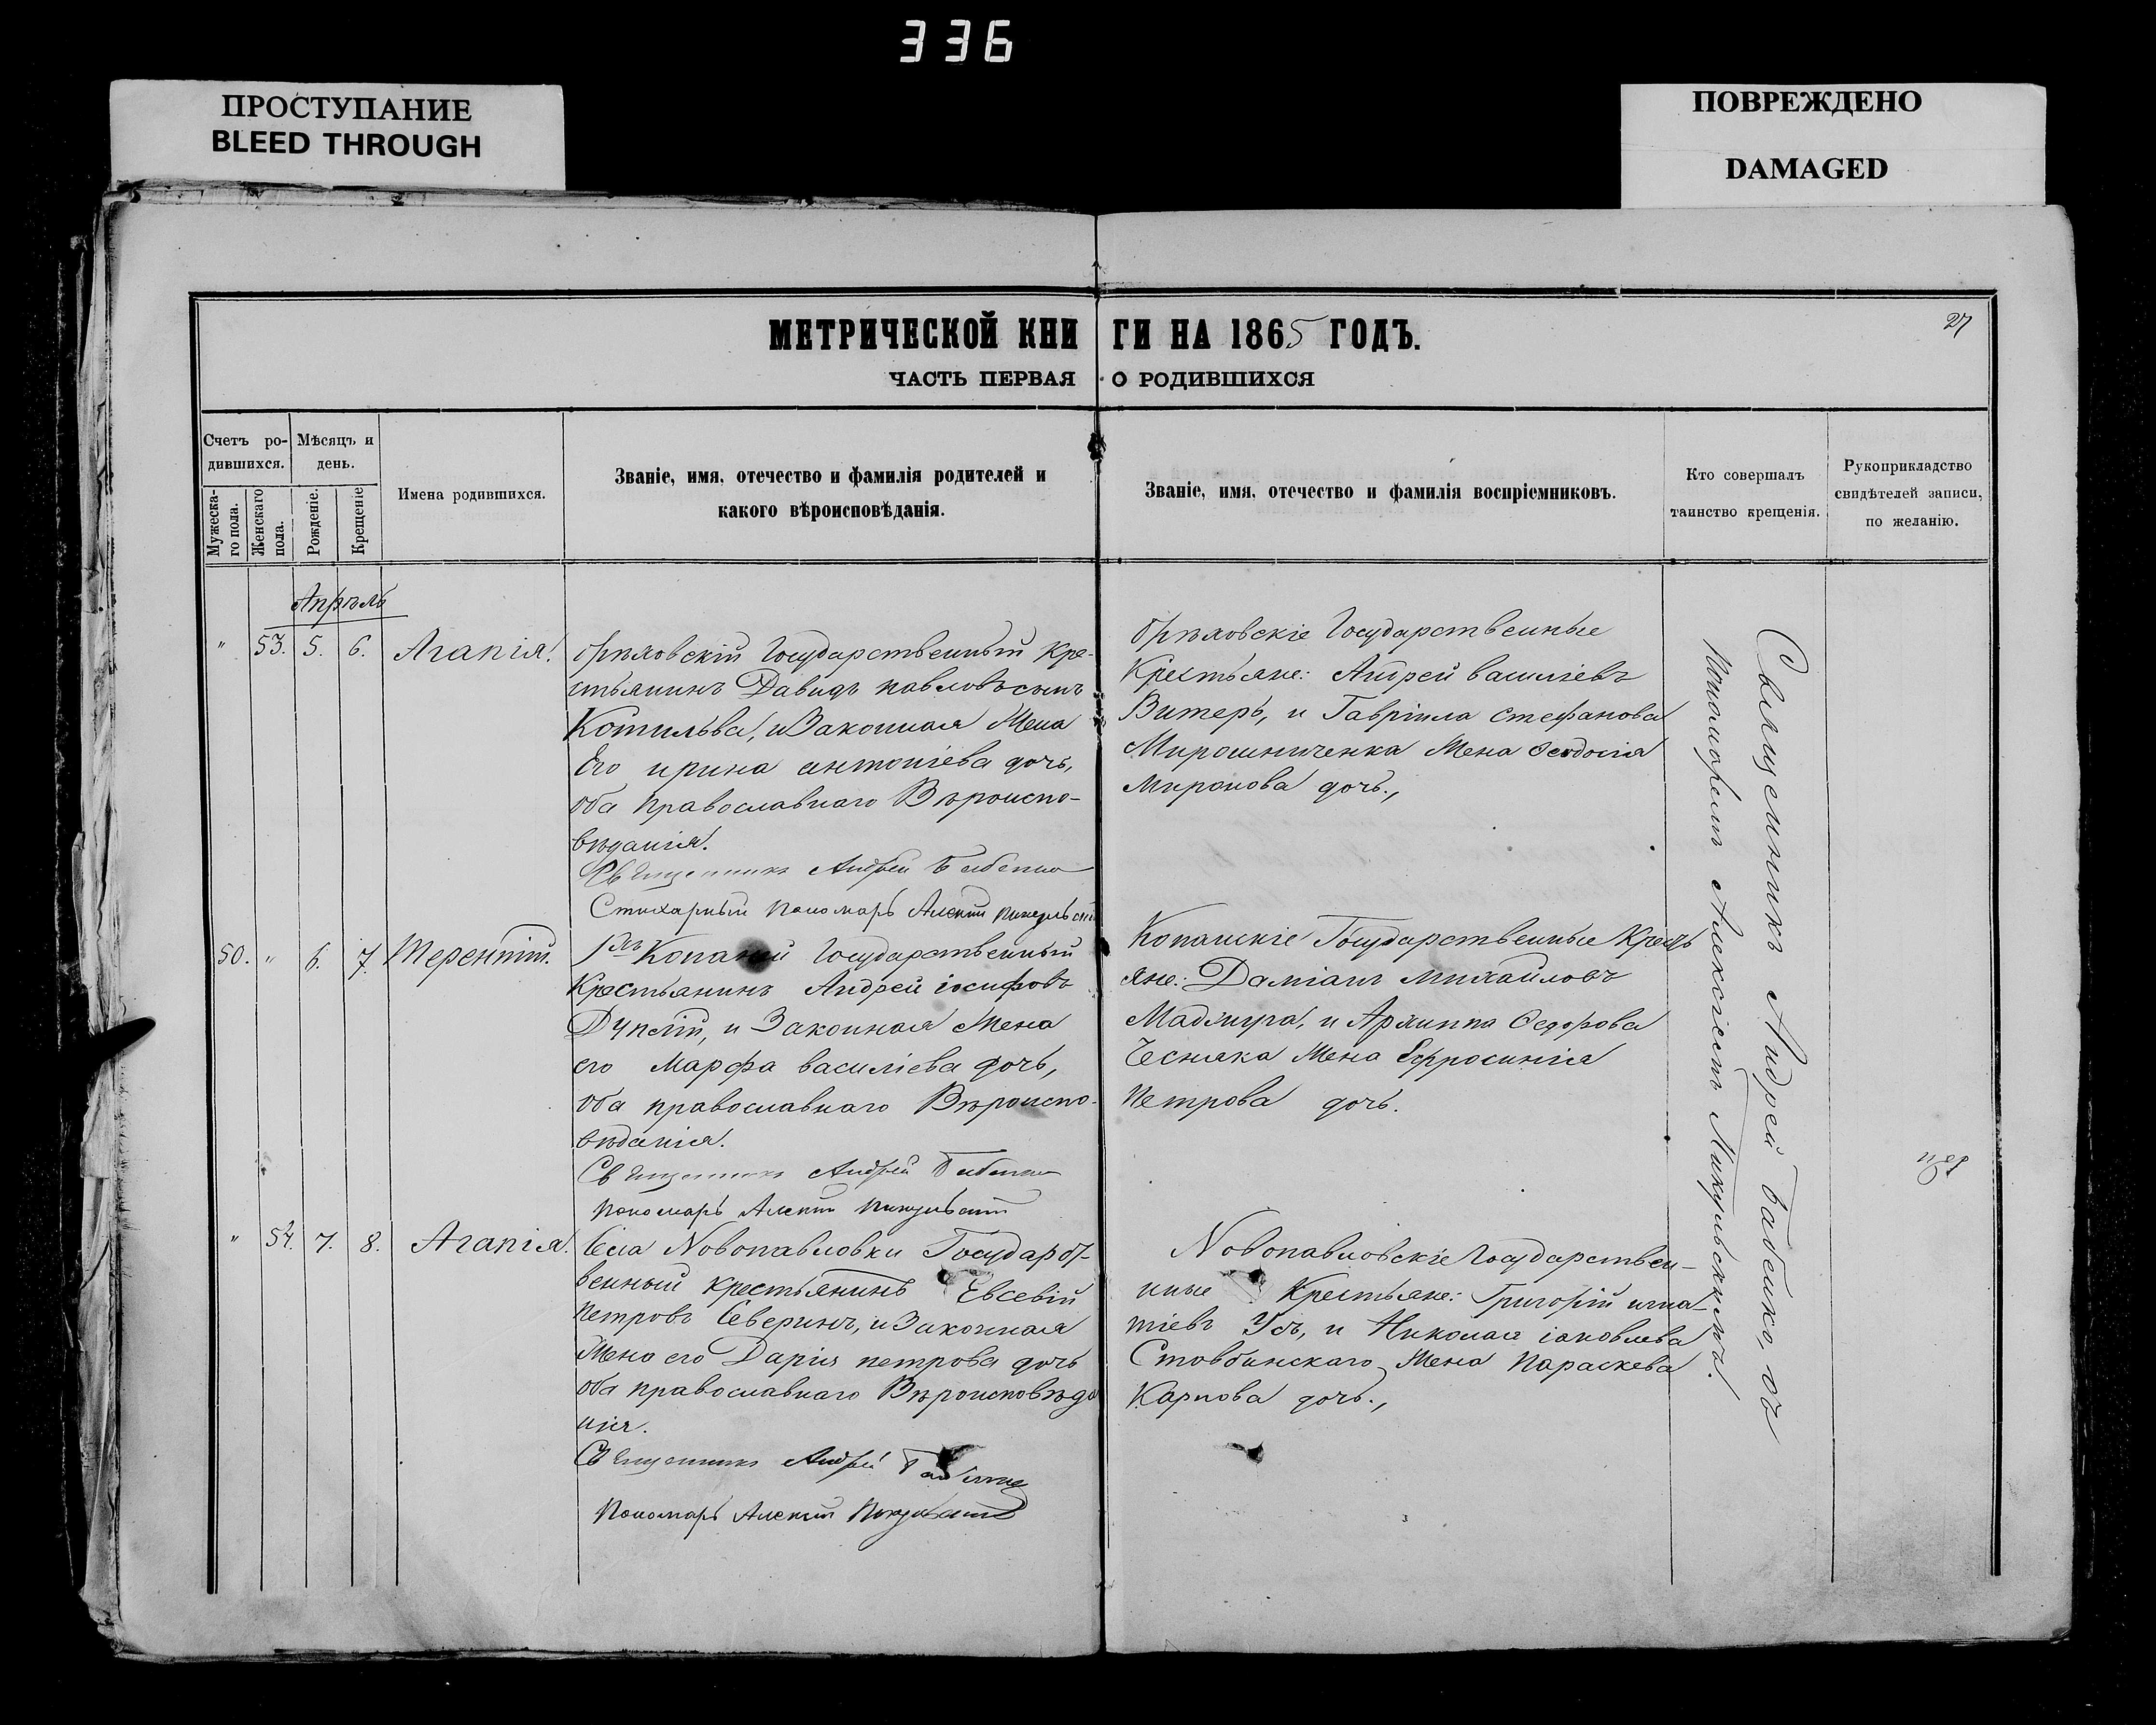 336
ПРОСТУПАНИЕ
BLEED THROUGH
ПОВРЕЖДЕНО
DAMAGED
27
МЕТРИЧЕСКОЙ КНИГИ НА 1865 ГОДЪ.
ЧАСТЬ ПЕРВАЯ О РОДИВШИХСЯ
Счетъ ро-
дившихся.
Мужеска-
го пола.
Женскаго
пола.
Мѣсяцъ и
день.
Рожденіе.
Крещеніе
Имена родившихся.
Званіе, имя, отечество и фамилія родителей и
какого вѣроисповѣданія.
Званіе, имя, отечество и фамилія воспріемниковъ.
Кто совершалъ
таинство крещенія.
Рукоприкладство
свидѣтелей записи,
по желанію.
Апрѣль
" 53. 5. 6. Агапія.
Орѣховскій Государственный Кре-
стьянинъ Давидъ павловъ сынъ
Котильва, и Законная Жена
Его ирина антоніева дочь,
оба православнаго Вѣроиспо-
вѣданія.
Священникъ Андрей Бабенко
Стихарный пономарь Алексій
Орѣховскіе Государственные
Крестьяне: Андрей василіевъ
Витеръ, и Гавріила стефанова
Мирошниченка Жена Ѳеодосія
миронова дочь.,
50. " 6. 7. Терентій.
Копаній Государственный
Крестьянинъ Андрей іосифовъ
и Законная Жена
его Марфа василіева дочь,
оба православнаго Вѣроиспо-
вѣданія.
Священникъ Андрей Бабенко
Пономарь Алексій
Копанскіе Государственные Кресть
яне: Даміанъ михаиловъ
и Архиппа Ѳедорова
Чесняка Жена Ефросинія
Петрова дочь.
" 54. 7. 8. Агапія.
Села Новопавловки Государст-
венный крестьянинъ Евсевій
петровъ Северинъ, и Законная
Жена его Дарія петрова дочь
оба православнаго Вѣроисповѣда
нія.
Священникъ Андрей Бабенко
Пономарь Алексій
Новопавловскіе Государствен-
ные Крестьяне: Григорій игна-
тіевъ Усъ, и Николая іаковлева
Стовбинскаго Жена Параскева
Карпова дочь.,
Священникъ Андрей Бабенко, съ
Пономаремъ Алексіемъ Микульскимъ.